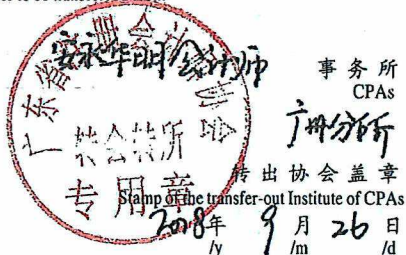 安永华明会计师 事务所
CPAs
广州分所
广东省注册会计师协会
转会转所
专用章
转出协会盖章
Stamp of the transfer-out Institute of CPAs
2018年 9月 26日
/y /m /d